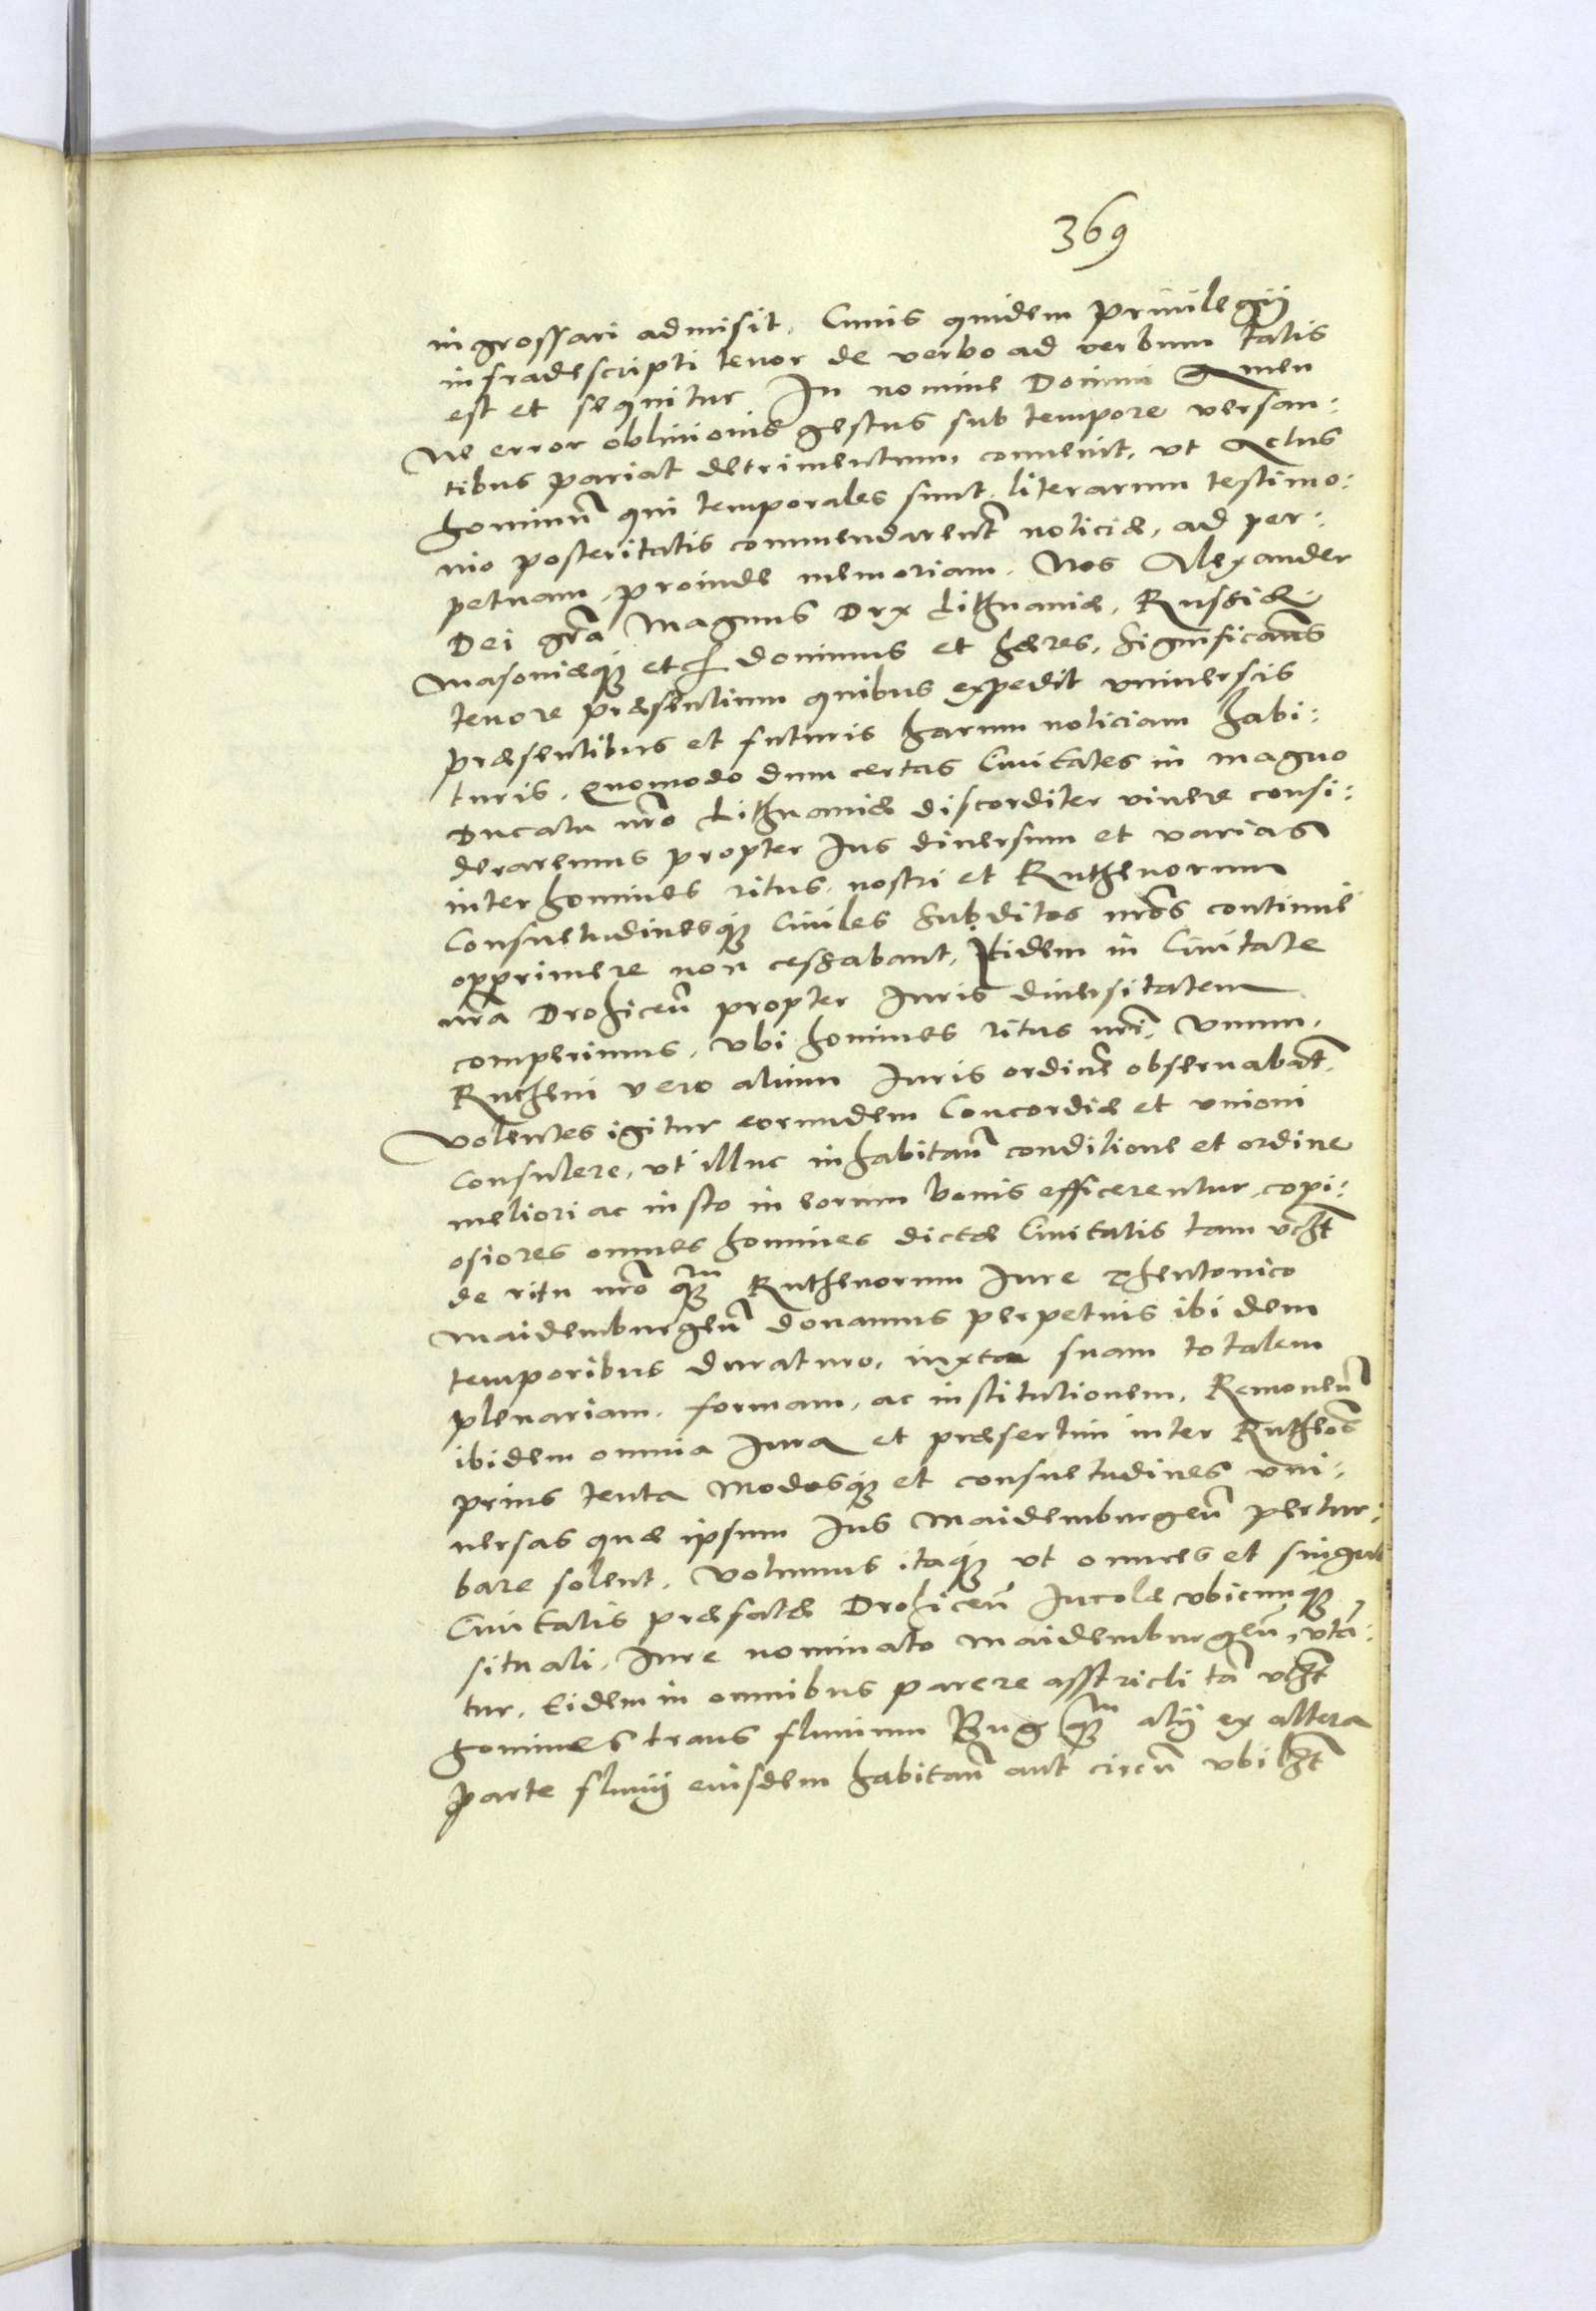 369
ingrossari admisit. Cuius quidem priuilegÿ
infradescripti tenor de verbo ad verbum talis
est et sequitur In nomine Domini Amen
Ne error obliuionis gestus sub tempore versan:
tibus pariat detrimentum, conuenit, vt Actus
hominũ qui temporales sunt, literarum testimo:
nio posteritatis commendarent̃ noticiæ, ad per:
petuam, proinde memoriam. Nos Alexander
Dei gr̃a Magnus Dux Lithuaniæ, Russiæ
Masouiæq; etc̃ dominus et hæres, Significam̃s
tenore præsentium quibus expedit vniuersis
præsentibus et futuris harum noticiam habi:
turis. Quomodo dum certas Ciuitates in magno
Ducatu nr̃o Lithuaniæ discorditer viuere consi:
deraremus propter Ius diuersum et varias
inter homines ritus nostri et Ruthenorum
Consuetudinesq; Ciuiles Subditos nr̃os continuè
opprimere non cessabant, Itidem in Ciuitate
nr̃a Drohiceñ propter Iuris diuersitatem
comperimus, vbi homines ritus nr̃i, vnum,
Rutheni vero alium Iuris ordinẽ obseruabãt,
Volentes igitur eorundem Concordiæ et vnioni
Consulere, vt illuc inhabitañ conditione et ordine
meliori ac iusto in eorum bonis efficerentur copi:
osiores omnes homines dictæ Ciuitatis tam vc̃ht
de ritu nr̃o q̃m Ruthenorum Iure Theutonico
Maidemburgeñ donamus perpetuis ibidem
temporibus duraturo, iuxta suam totalem
plenariam, formam, ac institutionem, Remoueñ
ibidem omnia Iura et præsertim inter Ruthẽos
prius tenta Modosq; et consuetudines vni:
uersas quæ ipsum Ius Maidemburgeñ pertur:
bare solent. Volumus itaq; vt omnes et singuli
Ciuitatis præfatæ Drohiceñ Incolæ vbicunq;
situati, Iure nominato Maidemburgeñ, vtã:
tur, Eidem in omnibus parere asstricti tã vc̃ht
homines trans fluuium Bug q̃m alÿ ex altera
parte fluuÿ eiusdem habitañ aut circũ vbilib̃t